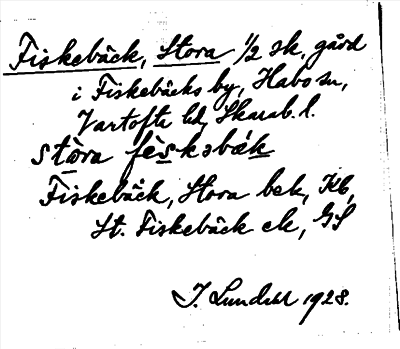 Fiskebäck, Stora 1/2 sk, gård
i Fiskebäcks by, Habo sn,
Vartofta hd, Skarab. l.
stòra fèskəbæk
Fiskebäck, Stora bek, Kb,
St. Fiskebäck ek, GS
J. Lundahl 1928.